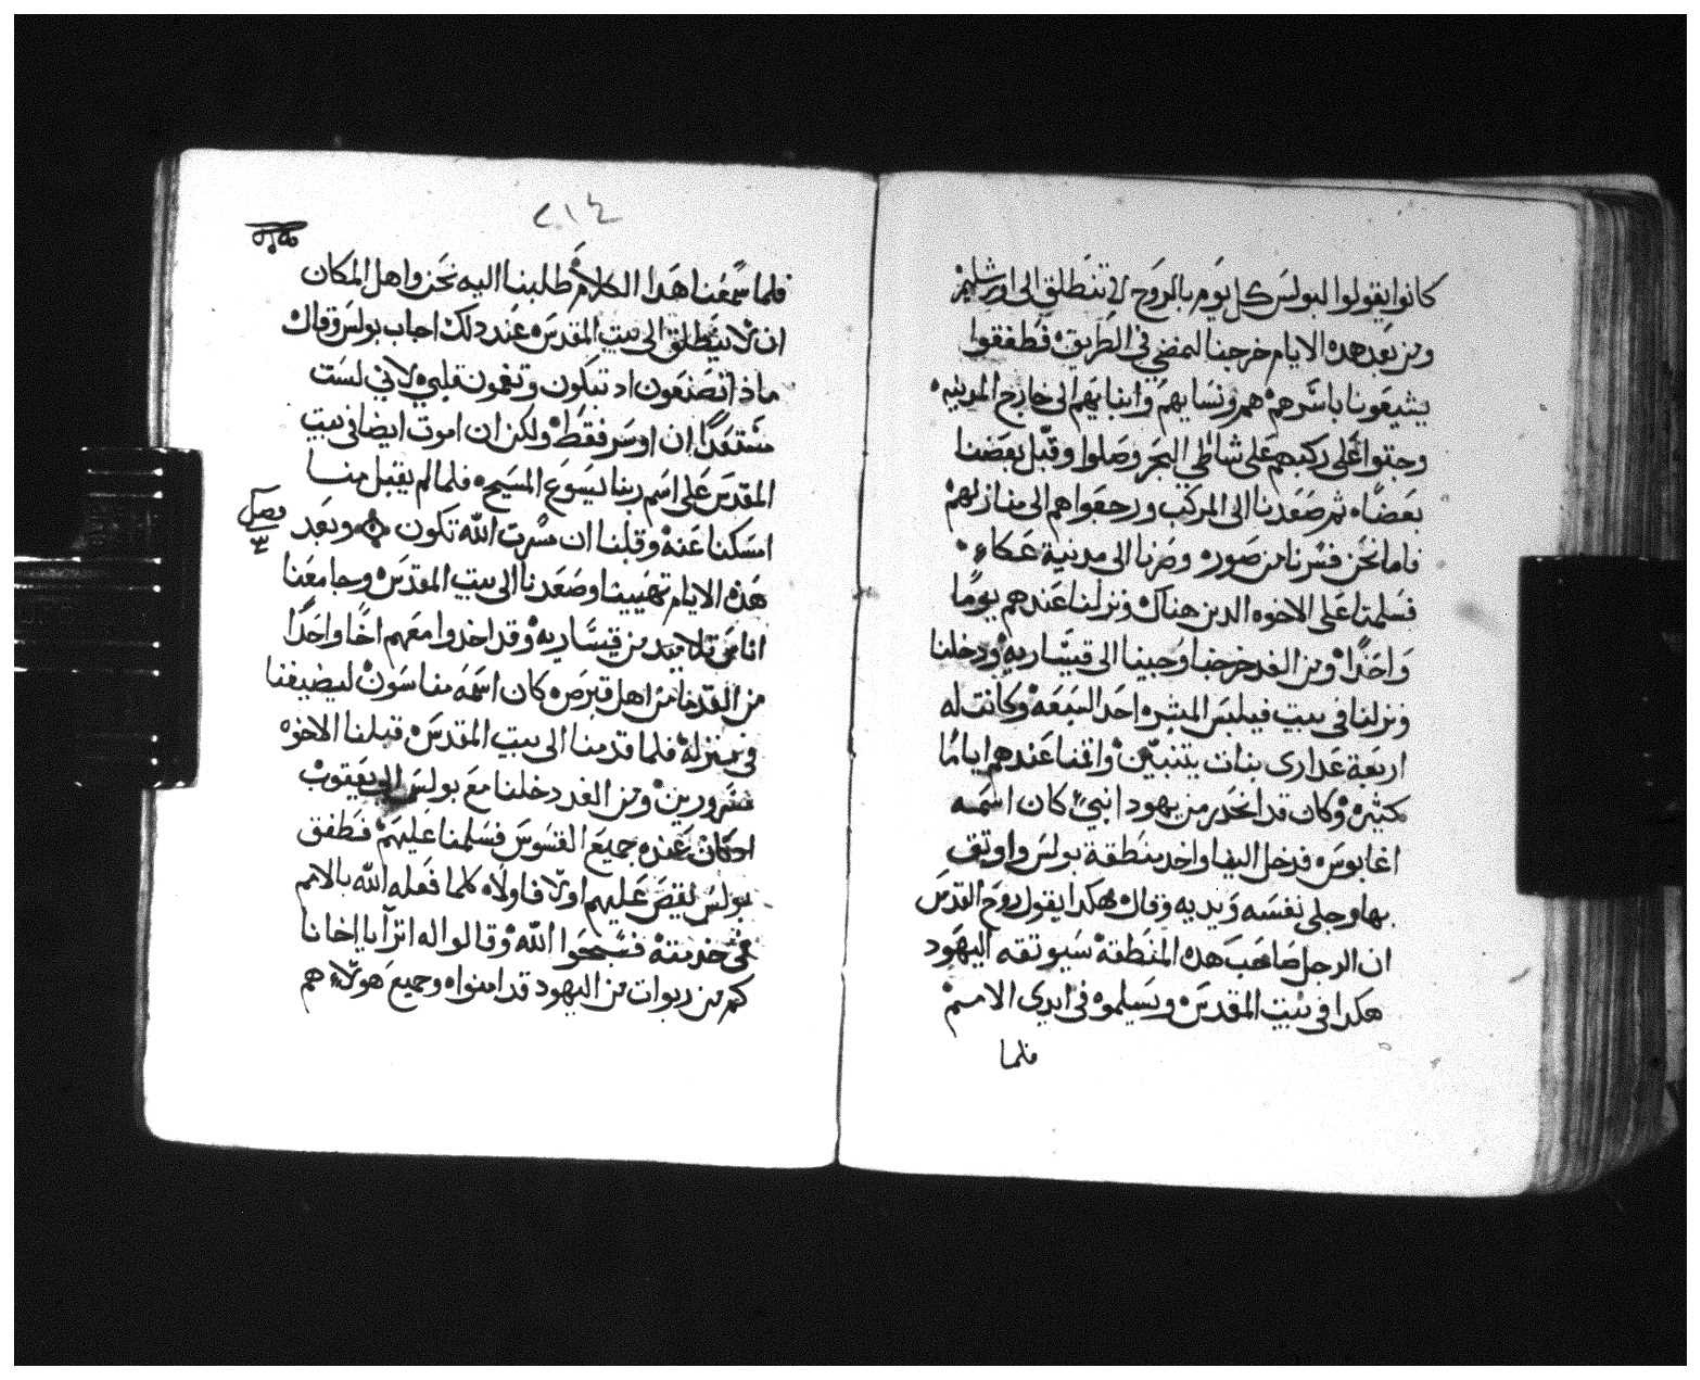 كانوا يقولوا لبولس كل يوم بالروح لا تنطلق الى اورشليم
ومن بعد هده الايام خرجنا لنمضي في الطريق فطفقوا
يشيعونا باسرهم هم ونسايهم وابنايهم الى خارج المدينه
وجتوا على ركبهم على شاطي البحر وصلوا وقبل بعضنا
بعضاه ثم صعدنا الى المركب ورجعوا هم الى منازلهم
فاما نحن فسرنا من صور وصرنا الى مدينة عكاء
فسلمنا على الاخوه الدين هناك ونزلنا عندهم يومًا
واحدًا ومن الغد خرجنا وجينا الى قيساريه ودخلنا
ونزلنا في بيت فيلبس المبشر احد السبعه وكانت له
اربعة عدارى بنات يتنبين واقمنا عندهم ايامًا
كثيره وكان قد انحدر من يهودا نبيً كان اسمه
اغابوس فدخل الينا واخد منطقة بولس واوتق
بها رجلى نفسه ويديه وقال هكدا يقول روح القدس
ان الرجل صاحب هده المنطقة سيوتقه اليهود
هكدا في بيت المقدس ويسلموه في ايدى الامم
فلما
٢١٤
فلما سمعنا هدا الكلام طلبنا اليه نحن واهل المكان
ان لا ينطلق الى بيت المقدس عند دلك اجاب بولس وقال
مادا تصنعون اد تبكون وتغمون قلبي لاني لست
مستعدًا ان اوسر فقط ولكن ان اموت ايضا في بيت
المقدس على اسم ربنا يسوع المسيح فلما لم يقبل منا
امسكنا عنه وقلنا ان مسرت الله تكون وبعد
فصل
هذه الايام تهيينا وصعدنا الى بيت المقدس وجا معنا
اناس تلاميد من قيساريه وقد اخدوا معهم اخًا واحدًا
من القدما من اهل قبرص كان اسمه مناسون ليضيفنا
في منزله فلما قدمنا الى بيت المقدس قبلنا الاخوه
مسرورين ومن الغد دخلنا مع بولس الى يعقوب
اد كان عنده جميع القسوس فسلمنا عليهم فطفق
بولس يقص عليهم اولا فاولاه كلما فعله الله بالامم
في خدمته فسبحوا الله وقالوا له اترا يا اخانا
كم من ربوات من اليهود قد امنواه وجميع هولاء هم